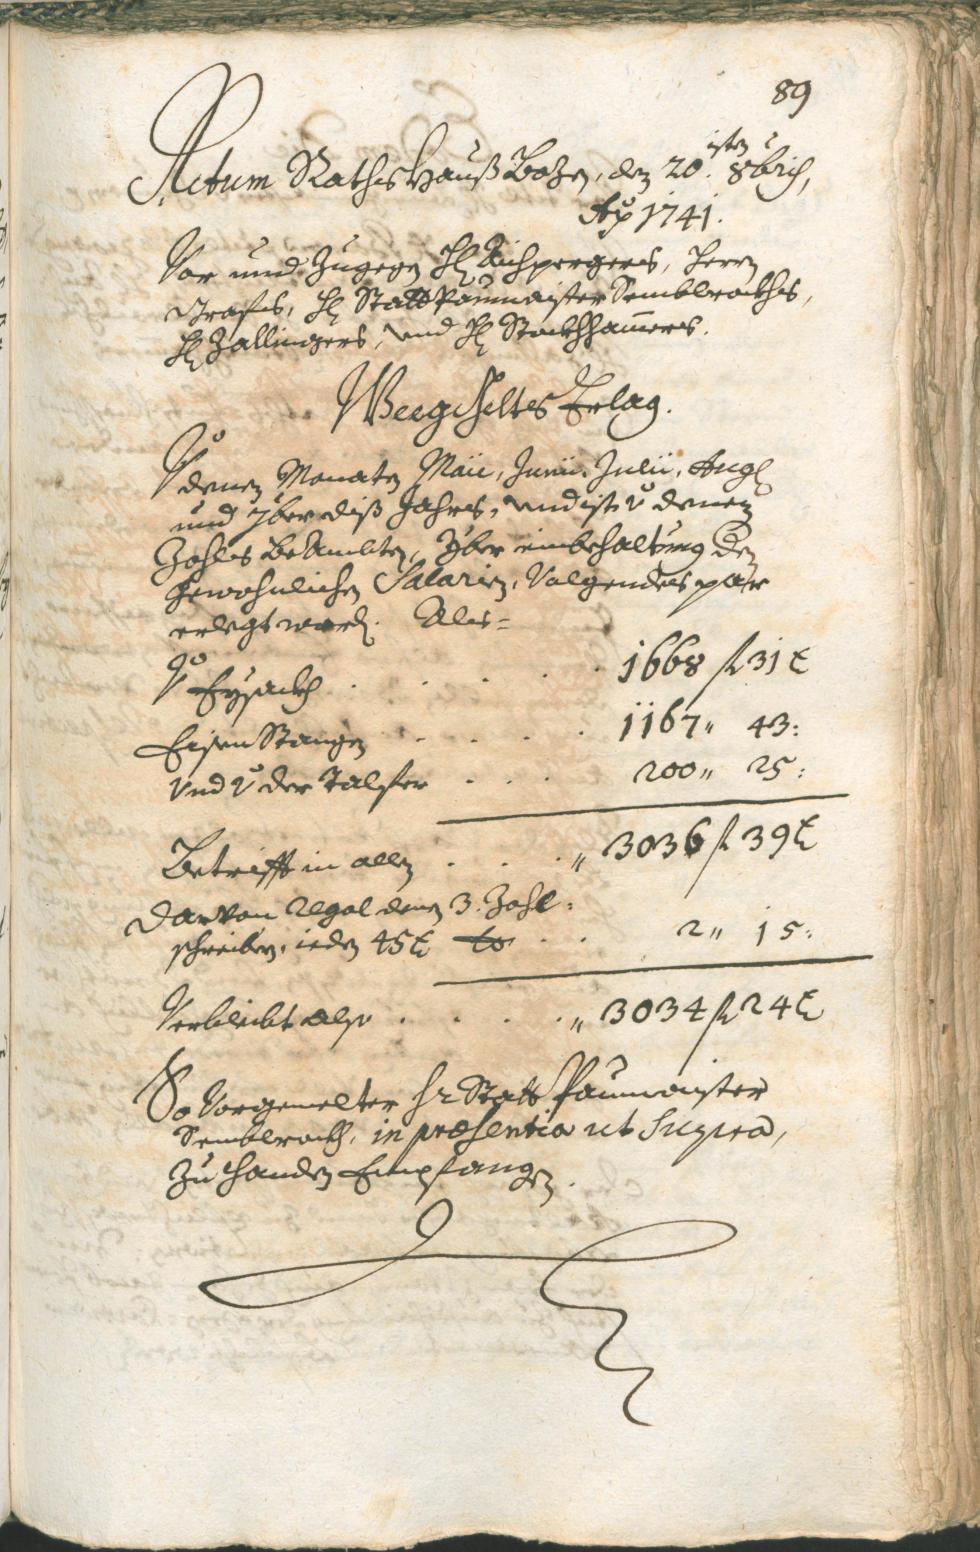 89
Actum Rathshauß Bozen, den 20.isten 8bris,
Ao 1741.
Vor und Zugegen H: Aichpergers, Herrn
Grafens, H: Statt Paumaister Semblrockhs,
H: Zallingers, und H: Stockhhamers.
Weeggelts Erlag.
Vo denen Monaten Maii, Junii, Julii, Aug:
und 7ber diß Jahres, und ist vo denen
Zohls Beambten, yber einbehaltung der
gewohnlichen Salarien, Volgendes par
erlegt word: Als:
Vo Eysackh . . . . . 1668 fl 31 x
Eisen Stangen . . . . . 1167 „ 43:
Und vo der Talfer . . . 200 „ 25:
Betrifft in allen . . . „ 3036 fl 39 x
Darvon Regal denen 3. Zohl:
schreibern, ieden 45 x to . . 2 „ 15:
Verbleibt also . . . . „ 3034 fl 24 x
So Vorgemelter Hr Statt Paumaister
Semblrockh, in præsentia ut Supra,
Zu Handen Empfangen.